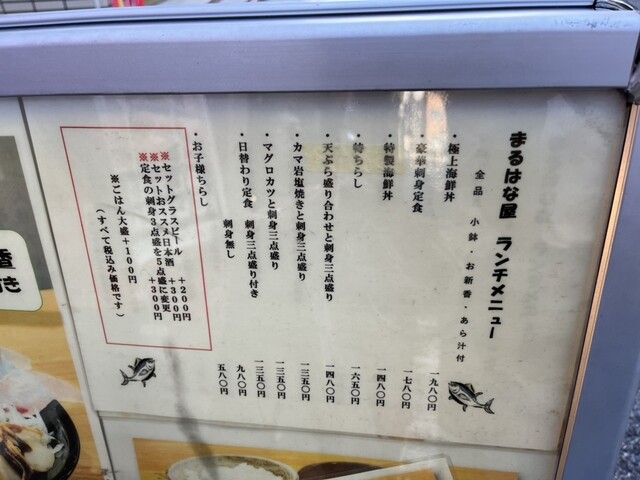 まるはな屋 ランチメニュー
全品 小鉢・お新香・あら汁付
・極上海鮮丼 一九八〇円
・豪華刺身定食 一七八〇円
・特製海鮮丼 一四八〇円
・特ちらし 一六五〇円
・天ぷら盛り合わせと刺身三点盛り 一四八〇円
・カマ岩塩焼きと刺身三点盛り 一三五〇円
・マグロカツと刺身三点盛り 一三五〇円
・日替わり定食 刺身三点盛り付き 一三五〇円
刺身無し 九八〇円
・お子様ちらし 五八〇円
※セットグラスビール +200円
※セットおススメ日本酒 +300円
※定食の刺身3点盛を5点盛に変更 +300円
※ごはん大盛+100円
(すべて税込み価格です)
き